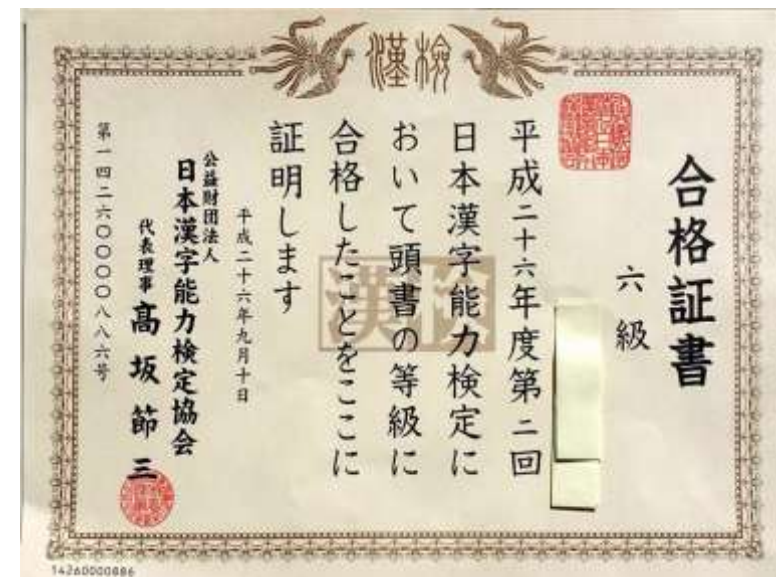 漢検
合格証書
六級
平成二十六年度第二回
日本漢字能力検定に
おいて頭書の等級に
合格したことをここに
証明します
漢検
平成二十六年九月十日
公益財団法人
日本漢字能力検定協会
代表理事 髙坂節三
第一四二六〇〇〇〇八八六号
14260000886